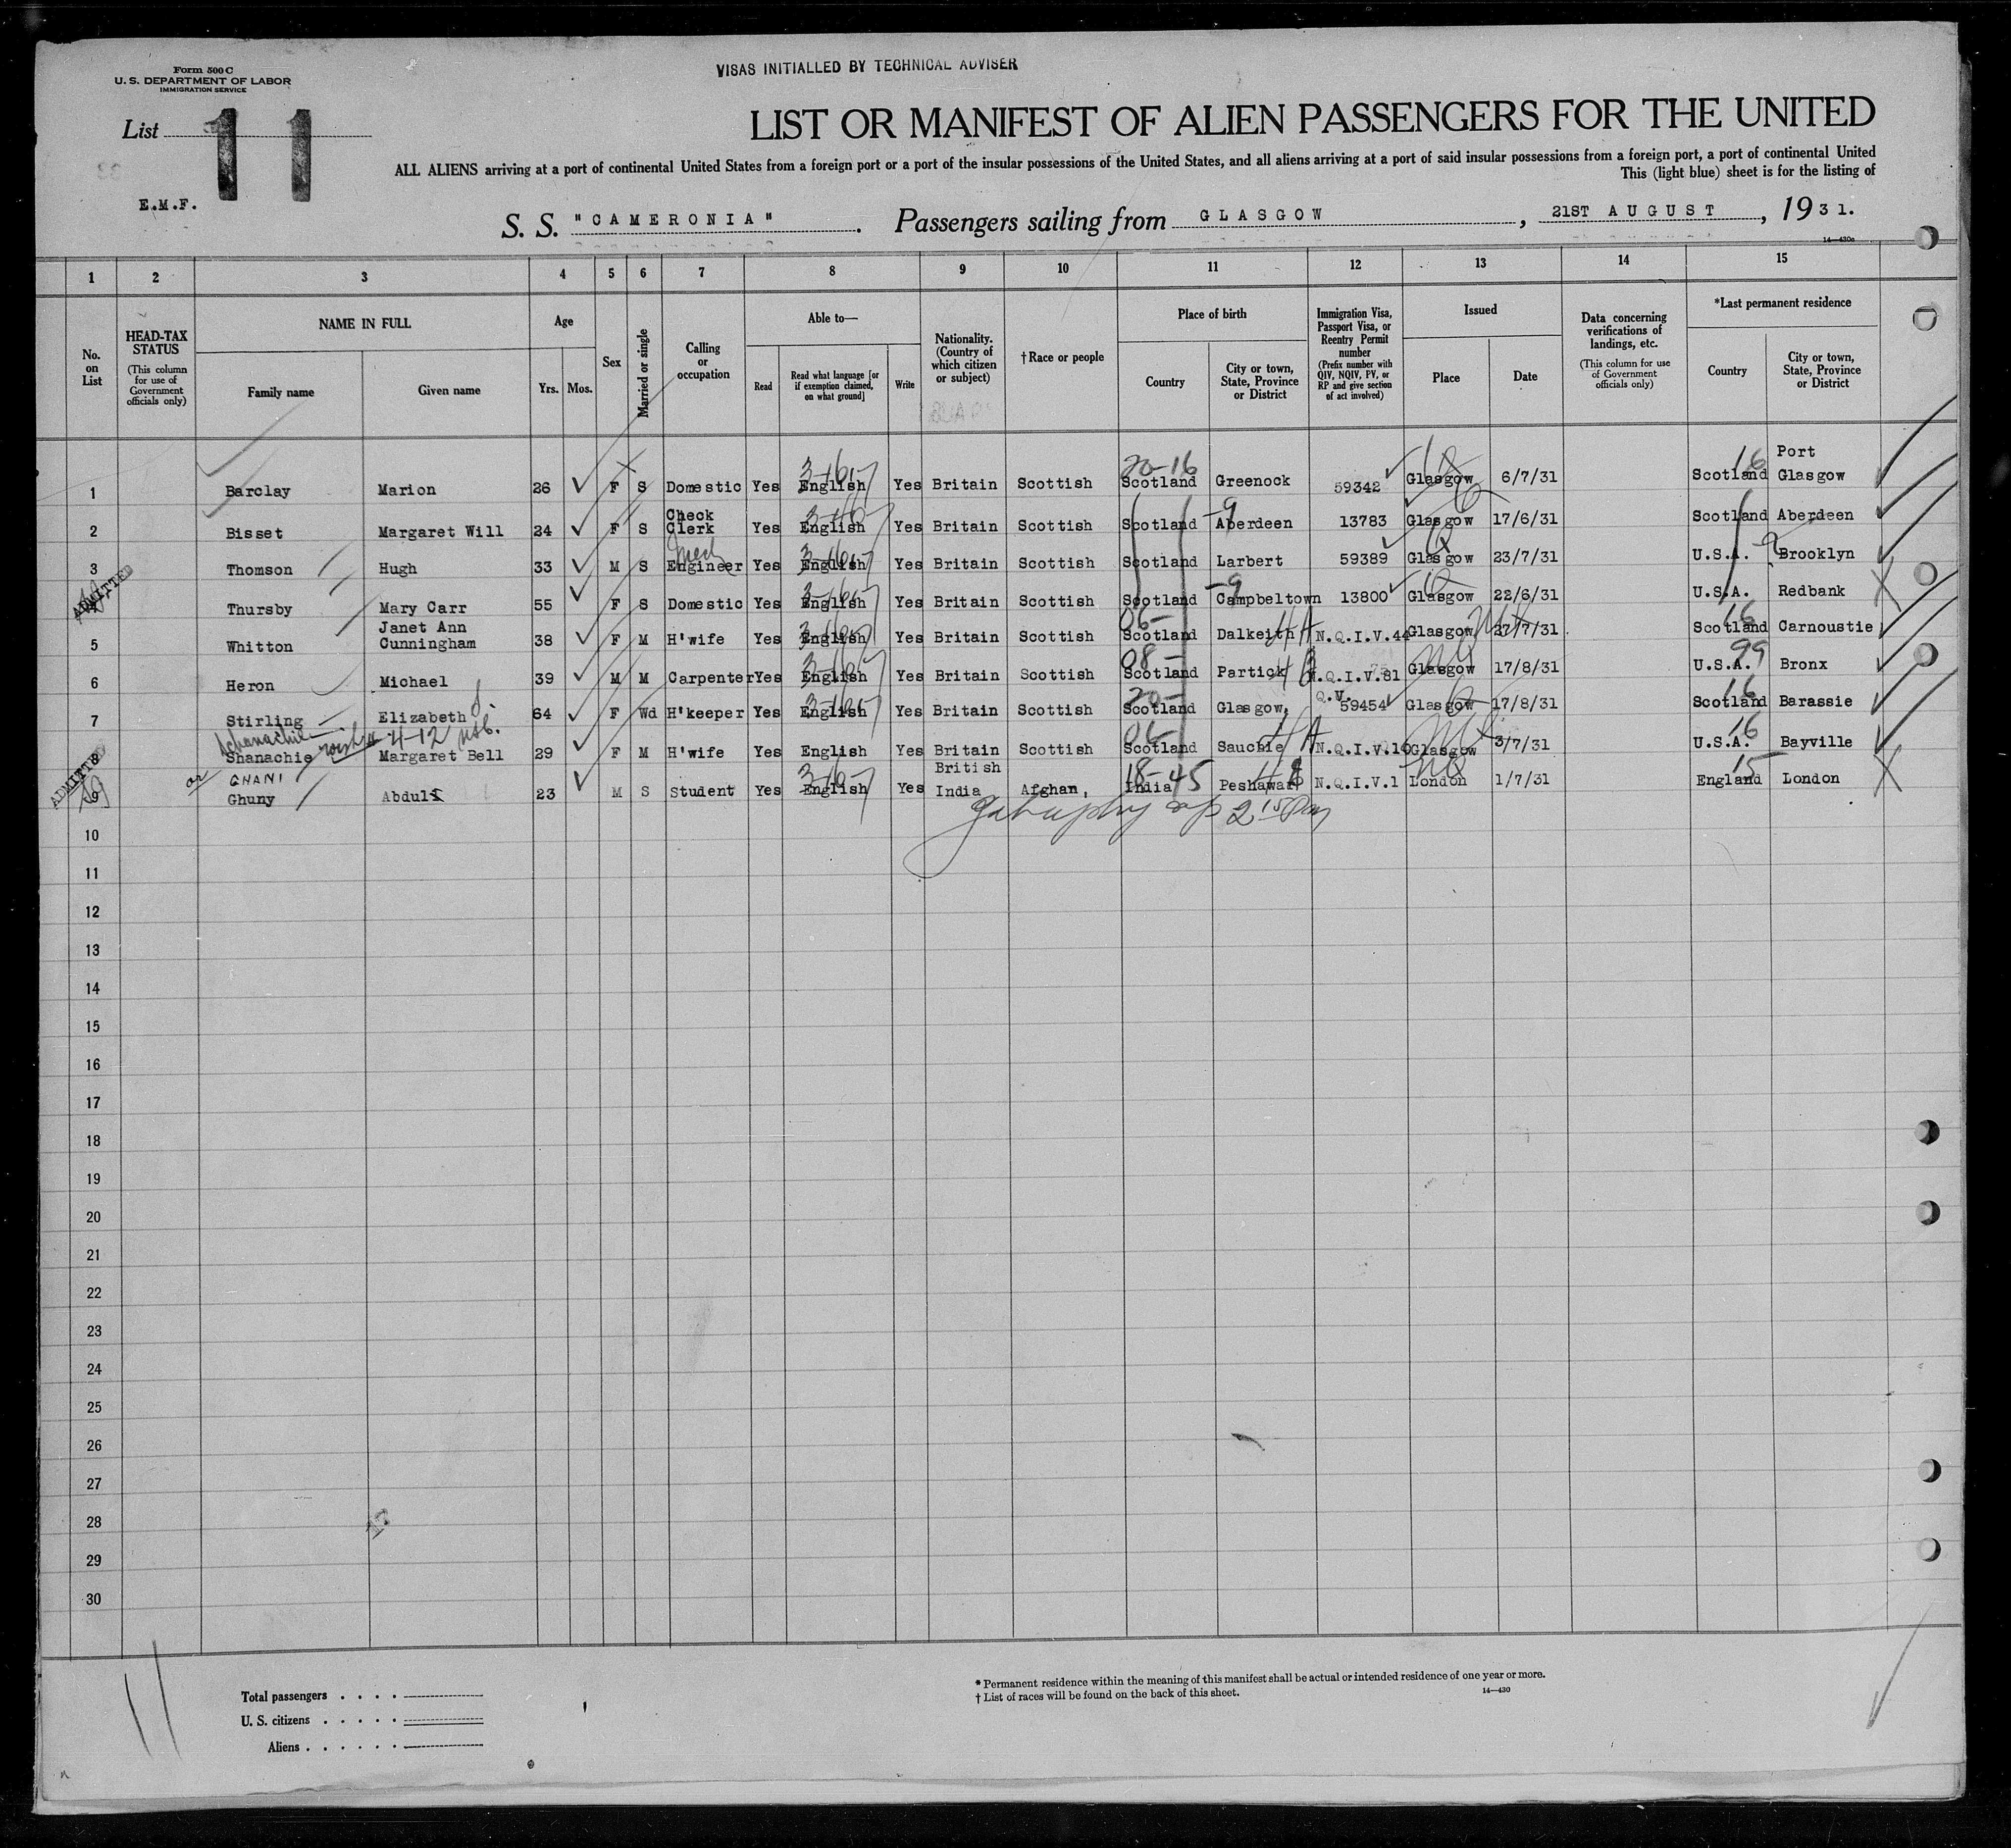 Form 500 C
U. S. DEPARTMENT OF LABOR
IMMIGRATION SERVICE
VISAS INITIALLED BY TECHNICAL ADVISER
List 11
LIST OR MANIFEST OF ALIEN PASSENGERS FOR THE UNITED
ALL ALIENS arriving at a port of continental United States from a foreign port or a port of the insular possessions of the United States, and all aliens arriving at a port of said insular possessions from a foreign port, a port of continental United
This (light blue) sheet is for the listing of
E.M.F.
S. S. "CAMERONIA". Passengers sailing from GLASGOW, 21ST AUGUST, 1931.
14—430a
1 2 3 4 5 6 7 8 9 10 11 12 13 14 15
No. on List
HEAD-TAX STATUS (This column for use of Government officials only)
NAME IN FULL
Family name
Given name
Age
Yrs. Mos.
Sex
Married or single
Calling or occupation
Able to—
Read
Read what language [or if exemption claimed, on what ground]
Write
Nationality. (Country of which citizen or subject)
†Race or people
Place of birth
Country
City or town, State, Province or District
Immigration Visa, Passport Visa, or Reentry Permit number (Prefix number with QIV, NQIV, PV, or RP and give section of act involved)
Issued
Place
Date
Data concerning verifications of landings, etc. (This column for use of Government officials only)
*Last permanent residence
Country
City or town, State, Province or District
20-16 16
1 Barclay Marion 26 F S Domestic Yes English Yes Britain Scottish Scotland Greenock 59342 Glasgow 6/7/31 Scotland Port Glasgow
2 Bisset Margaret Will 24 F S Check Clerk Yes English Yes Britain Scottish Scotland -9 Aberdeen 13783 Glasgow 17/6/31 Scotland Aberdeen
3 Thomson Hugh 33 M S Mech Engineer Yes English Yes Britain Scottish Scotland Larbert 59389 Glasgow 23/7/31 U.S.A. Brooklyn
ADMITTED
4 Thursby Mary Carr 55 F S Domestic Yes English Yes Britain Scottish Scotland -9 Campbeltown 13800 Glasgow 22/6/31 U.S.A. Redbank
5 Whitton Janet Ann Cunningham 38 F M H'wife Yes English Yes Britain Scottish 06- Scotland Dalkeith N.Q.I.V.44 Glasgow 27/7/31 16 Scotland Carnoustie
6 Heron Michael 39 M M Carpenter Yes English Yes Britain Scottish 08- Scotland Partick N.Q.I.V.81 Glasgow 17/8/31 99 U.S.A. Bronx
7 Stirling Elizabeth 64 F Wd H'keeper Yes English Yes Britain Scottish 20- Scotland Glasgow, Q.V. 59454 Glasgow 17/8/31 16 Scotland Barassie
4-12
8 Shanachie Margaret Bell 29 F M H'wife Yes English Yes Britain Scottish 06- Scotland Sauchie N.Q.I.V.10 Glasgow 3/7/31 16 U.S.A. Bayville
ADMITTED
or GHANI
9 Ghuny Abdul 23 M S Student Yes English Yes British India Afghan, 18-45 India Peshawar N.Q.I.V.1 London 1/7/31 15 England London
10
11
12
13
14
15
16
17
18
19
20
21
22
23
24
25
26
27
28
29
30
Total passengers
U. S. citizens
Aliens
* Permanent residence within the meaning of this manifest shall be actual or intended residence of one year or more.
† List of races will be found on the back of this sheet.
14—430